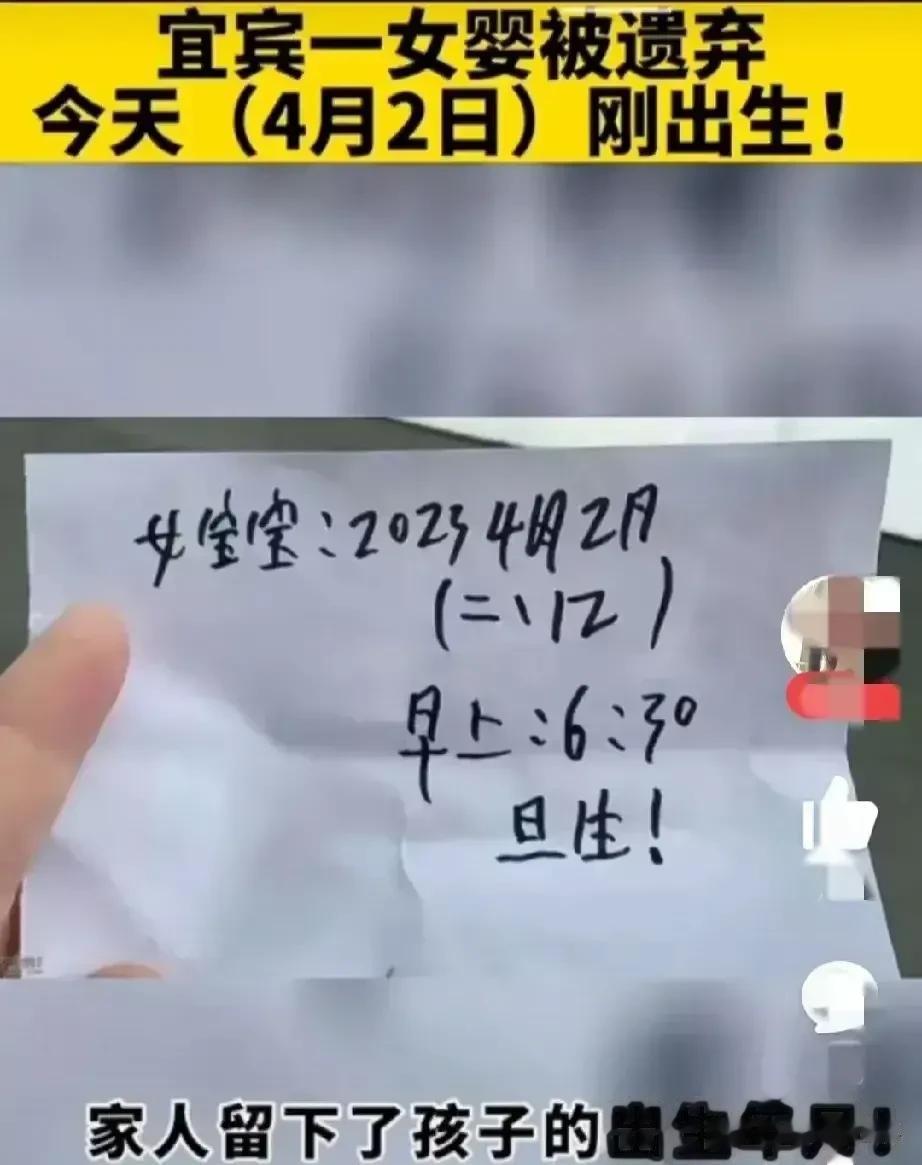 宜宾一女婴被遗弃
今天（4月2日）刚出生！
女宝宝：2023 4月2月
(二、12)
早上：6：30
旦生！
家人留下了孩子的出生年月！